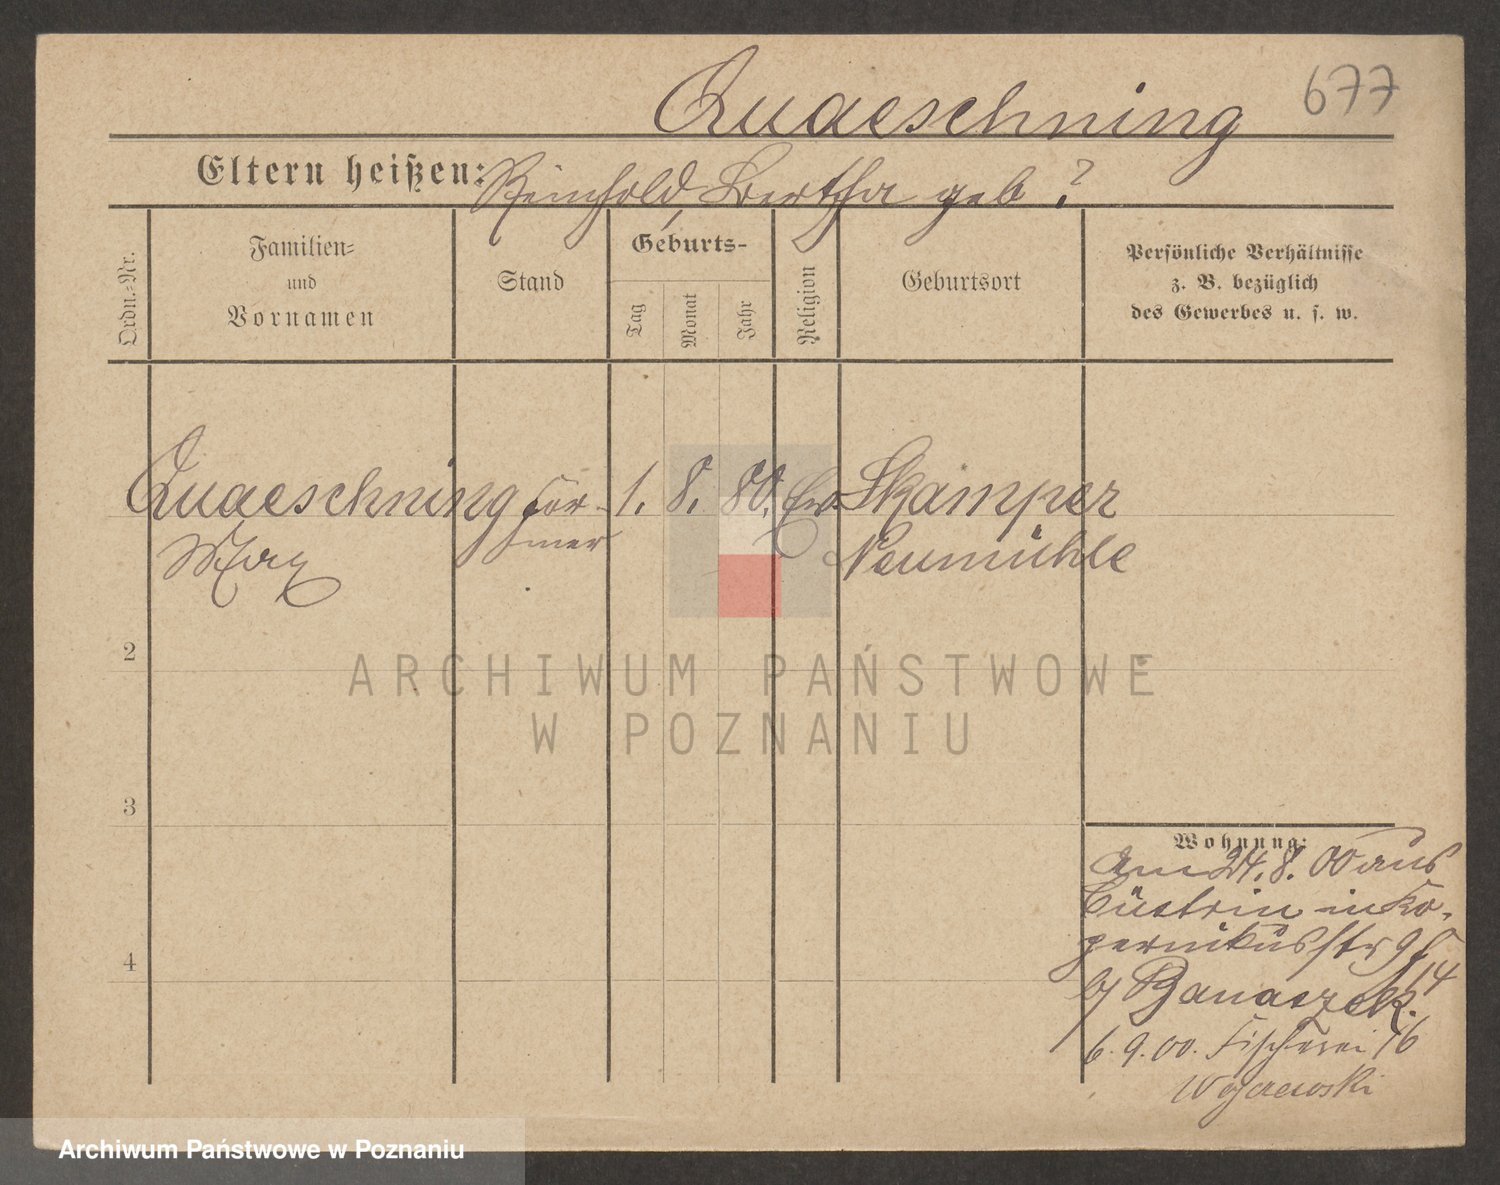 Quaeschning 677
Eltern heißen: Reinhold, Bertha geb ?
Ordn.-Nr.
Familien-
und
Vornamen
Stand
Geburts-
Tag
Monat
Jahr
Religion
Geburtsort
Persönliche Verhältnisse
z. B. bezüglich
des Gewerbes u. s. w.
Quaeschning För- 1. 8. 80. Ev. Skamper
Max mer Neumühle
2
3
4
ARCHIWUM PAŃSTWOWE
W POZNANIU
Wohnung:
Am 24. 8. 00 aus
Cüstrin in Ko-
pernikusstr 9
14
b/ Banaszek.
6. 9. 00. Fischerei 16
Archiwum Państwowe w Poznaniu